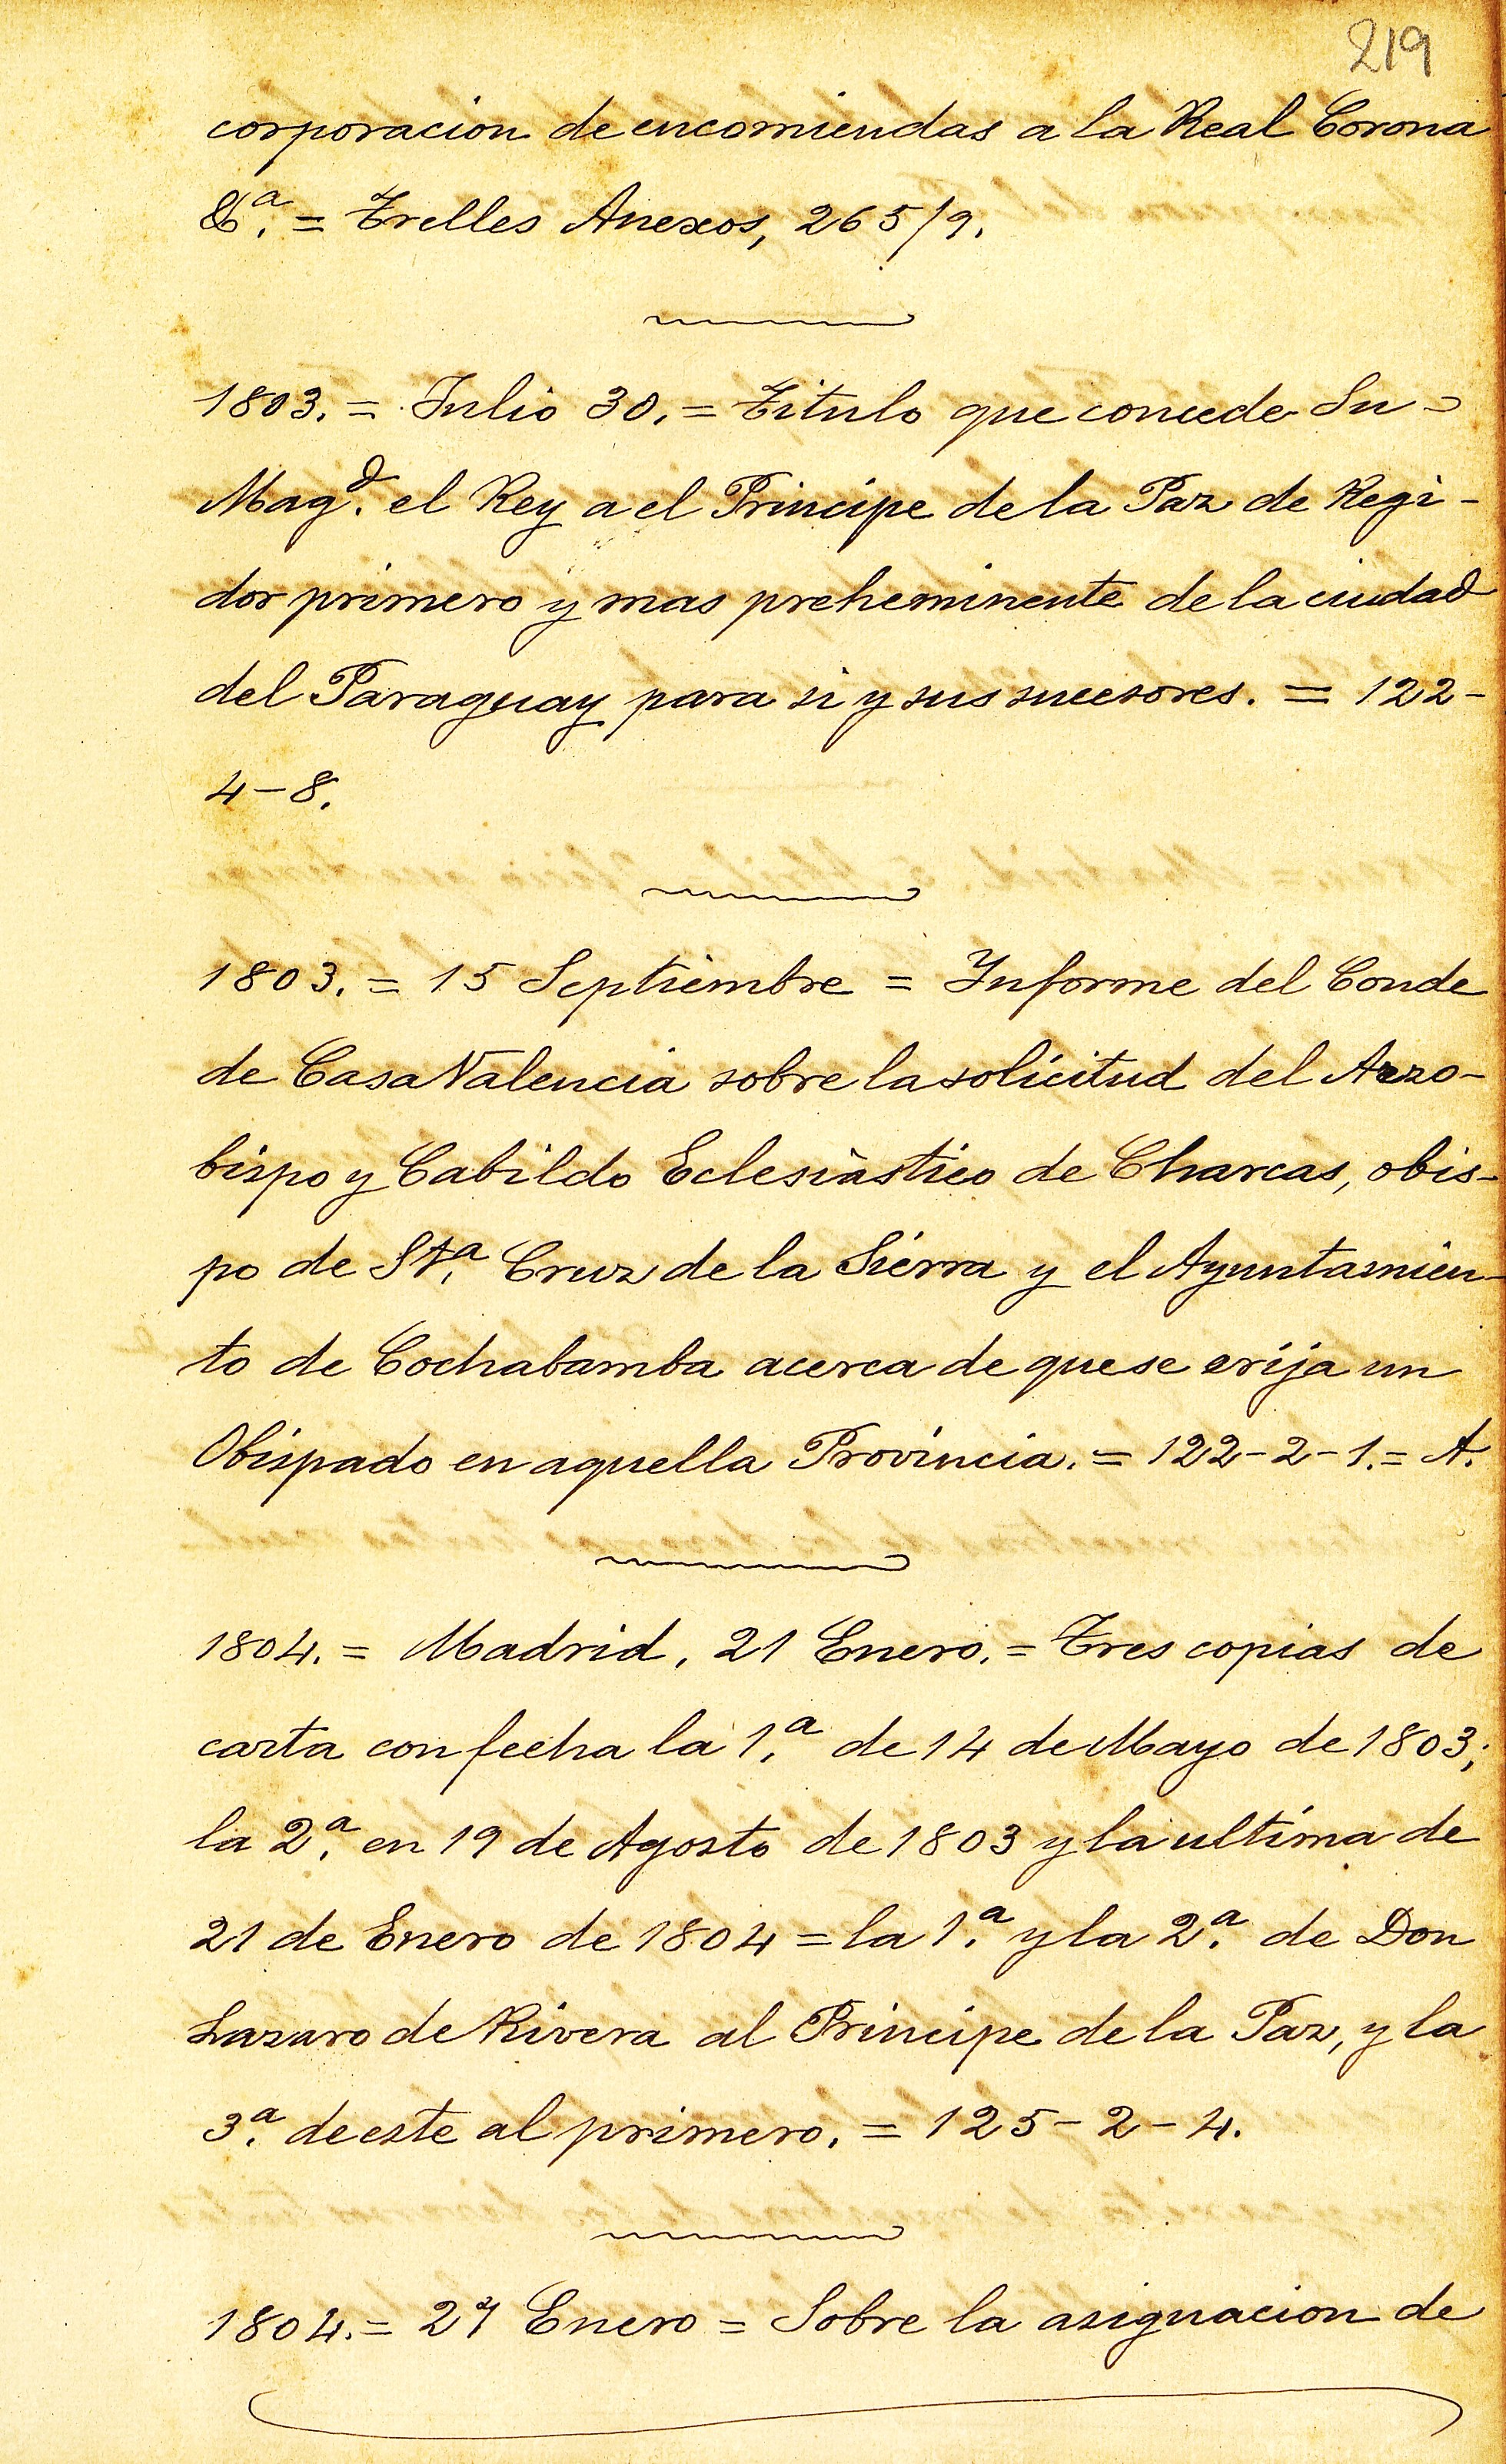 219
corporacion de encomiendas a la Real Corona
&ª. = Trelles Anexos, 265/9.
1803. = Julio 30. = Titulo que concede Su =
Magd. el Rey a el Principe de la Paz de Regi-
dor primero y mas preheminente de la ciudad
del Paraguay para si y sus sucesores. = 122-
4-8.
1803. = 15 Septiembre = Informe del Conde
de Casa Valencia sobre la solicitud del Arzo-
bispo y Cabildo Eclesiàstico de Charcas, obis-
po de Stª. Cruz de la Sierra y el Ayuntamien-
to de Cochabamba acerca de que se erija un
Obispado en aquella Provincia. = 122-2-1. = A.
1804. = Madrid, 21 Enero. = Tres copias de
carta con fecha la 1.ª de 14 de Mayo de 1803;
la 2.ª en 19 de Agosto de 1803 y la ultima de
21 de Enero de 1804 = la 1.ª y la 2.ª de Don
Lazaro de Rivera al Principe de la Paz, y la
3.ª de este al primero. = 125-2-4.
1804. = 27 Enero = Sobre la asignacion de